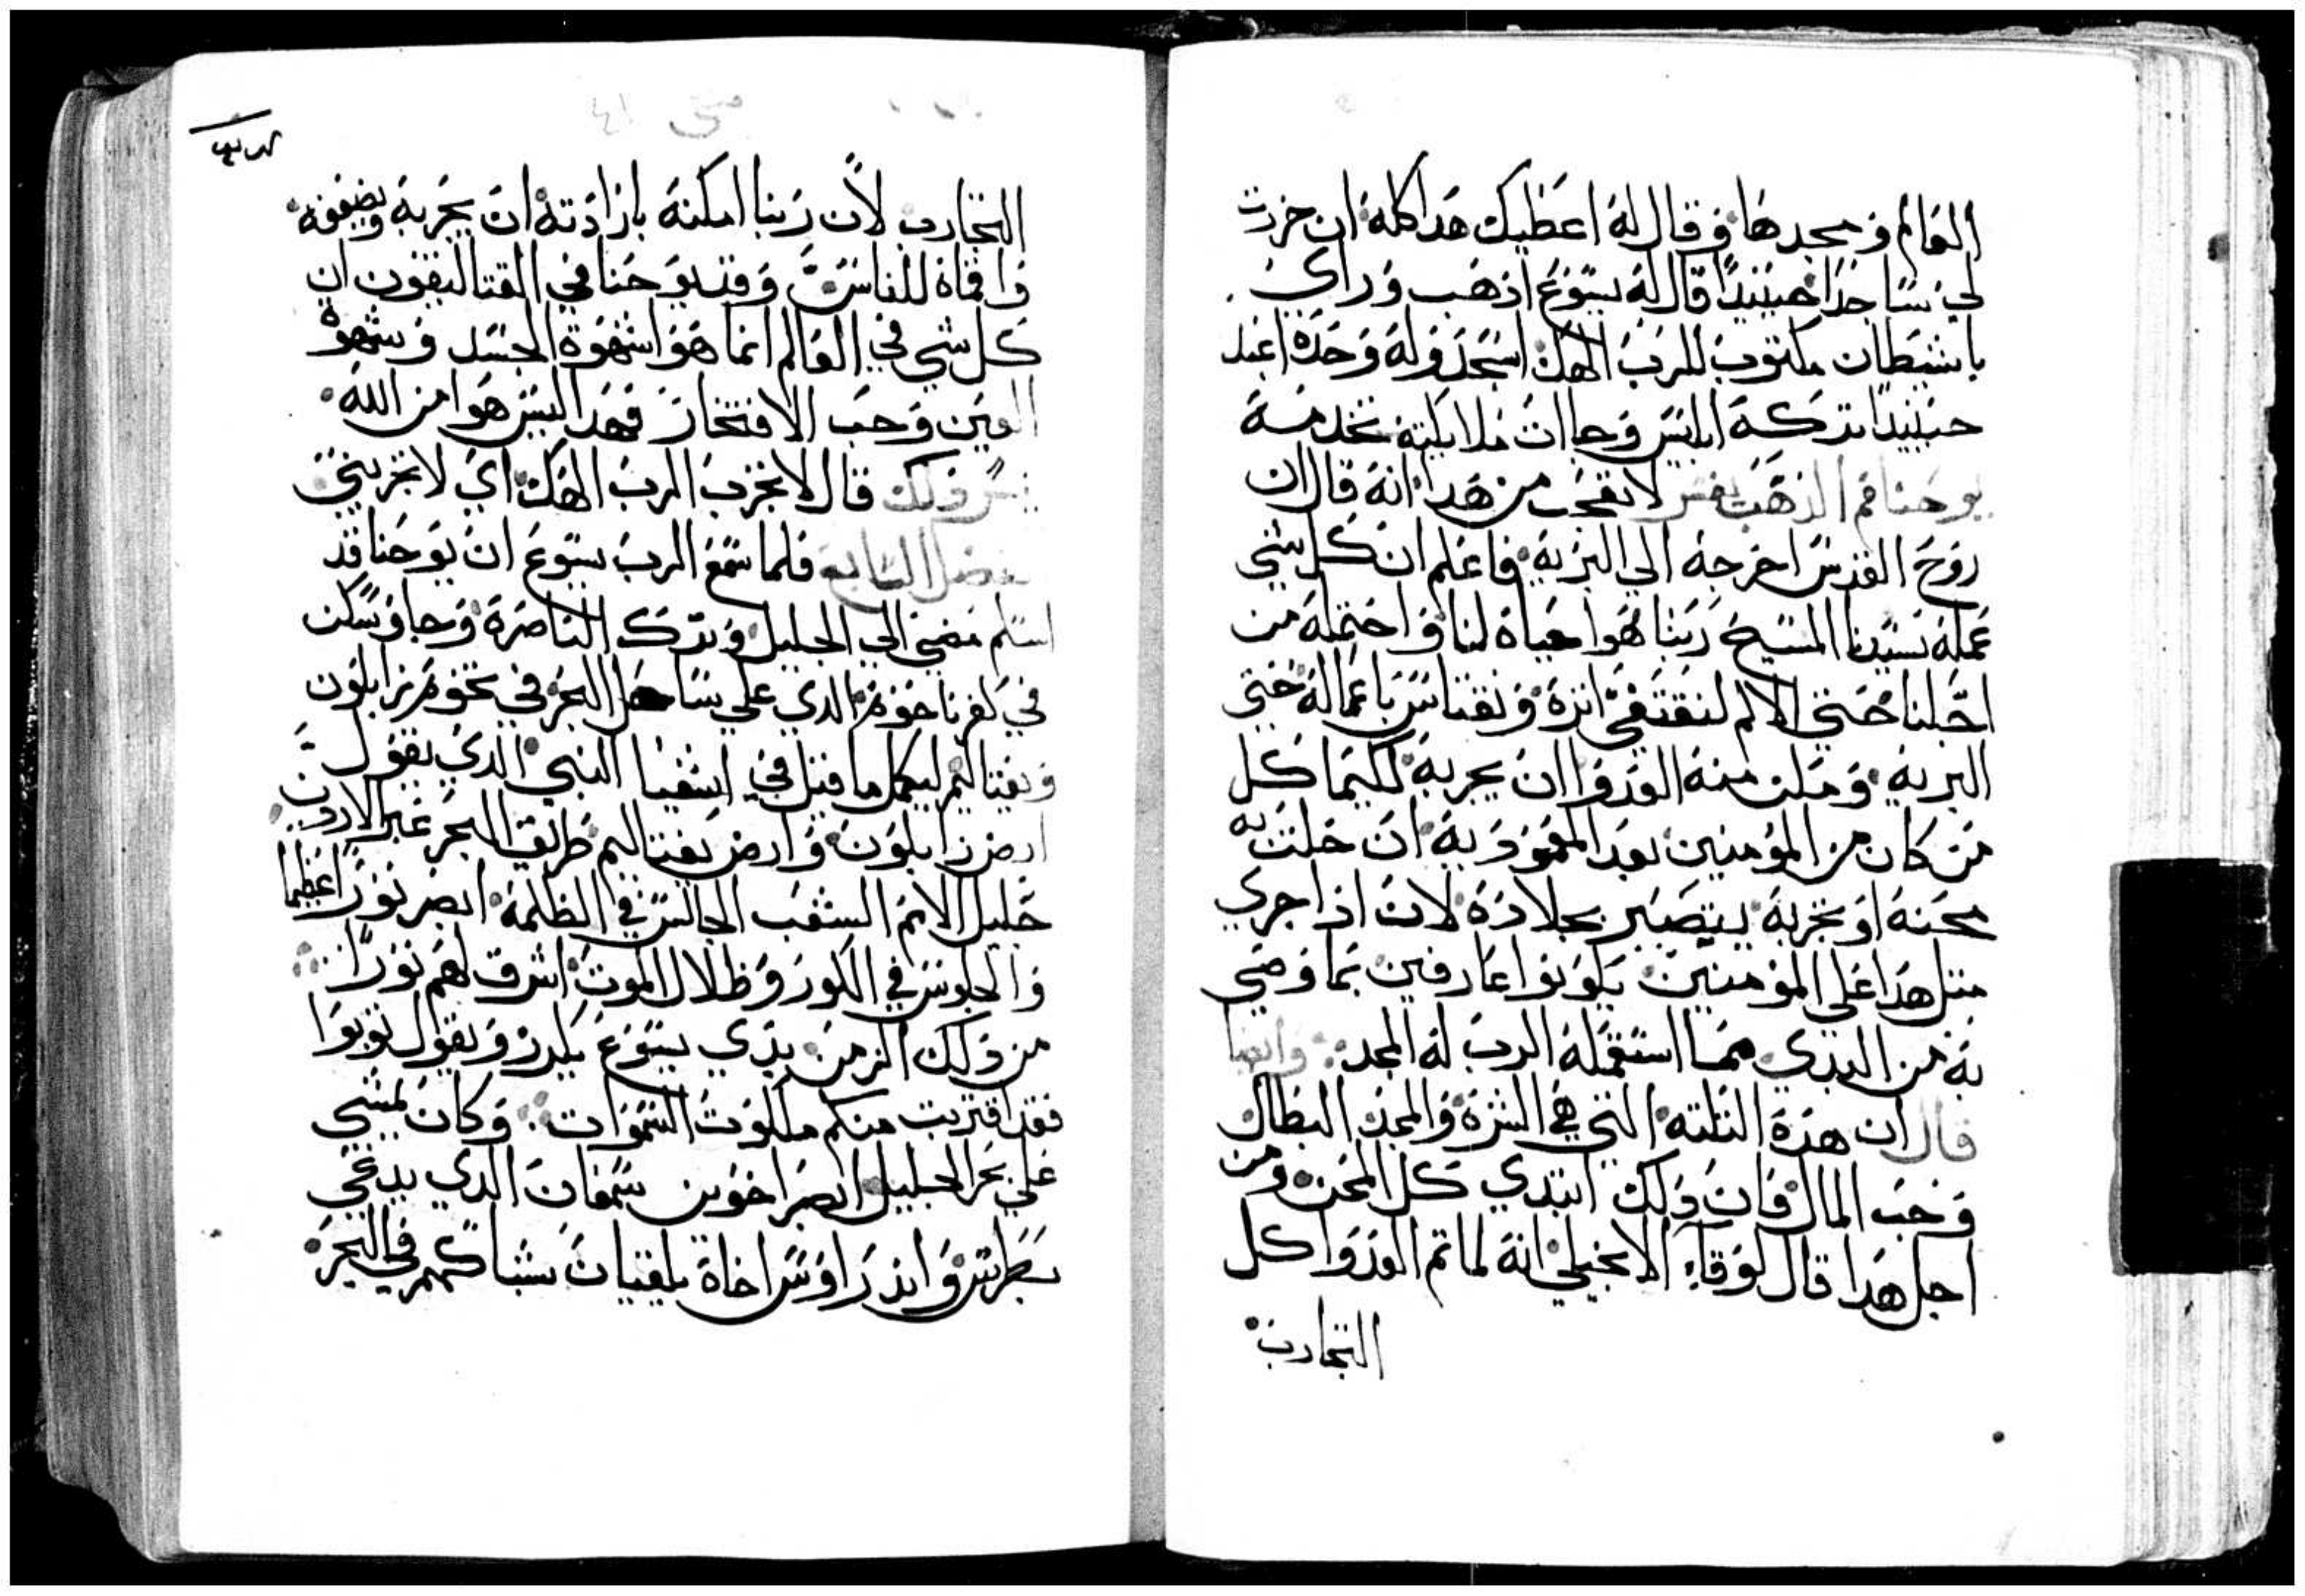 العالم ومجدها وقال له اعطيك هدا كله ان خررت
لي ساجدا حينيدا قال له يسوع اذهب وراي
يا شيطان مكتوب للرب الهك اسجد وله وحده اعبد
حينيدا تركه ابليس وجاات ملايكته تخدمه
يوحنا فم الذهب يفسر لا تعجب من هدا انه قال ان
روح القدس اخرجه الي البريه فاعلم ان كل شي
عمله سيدنا المسيح ربنا هوا حياه لنا واحتمله من
اجلنا حتي الالم لنقتفي اثره ونقتاس باعماله حتي
البريه ومكن منه العدوا ان يجربه لكيما كل
من كان من المؤمنين بعد المعموديه ان حلت به
محنه او تجربه يتصبر بجلاده لان اذا جري
متل هدا علي المؤمنين يكونوا عارفين بما وصي
به من البدي مما استعمله الرب له المجد وايضا
قال ان هده التلته التي هي الشره والمجد البطال
وحب المال فان دلك ابتدي كل المحن ومن
اجل هدا قال لوقا الانجيلي انه لما تم العدوا كل
التجارب
متي ٤١
التجارب لان ربنا امكنه بارادته ان يجربه ويضعفه
واقماه للناس وقد يوحنا في القتاليقون ان
كل شي في العالم انما هوا شهوة الجسد وشهوة
العين وحب الافتخار فهدا ليس هوا من الله
قال لا تجرب الرب الهك اي لا تجربني
الفصل السابع فلما سمع الرب يسوع ان يوحنا قد
اسلم مضي الي الجليل وترك الناصرة وجا وسكن
في كفرناحوم الدي علي ساحل البحر في تخوم زابلون
ونفتاليم ليكمل ما قيل في اشعيا النبي الدي يقول
ارض زابلون وارض نفتاليم طريق البحر عبر الاردن
جليل الامم الشعب الجالس في الظلمة ابصر نورا عظيما
والجلوس في الكور وظلال الموت اشرق لهم نورا
من دلك الزمن بدي يسوع يكرز ويقول توبوا
فقد اقتربت منكم ملكوت السموات وكان يمشي
علي بحر الجليل ابصر اخوين سمعان الدي يدعي
بطرس واندراوس اخاة يلقيان شباكهم في البحر